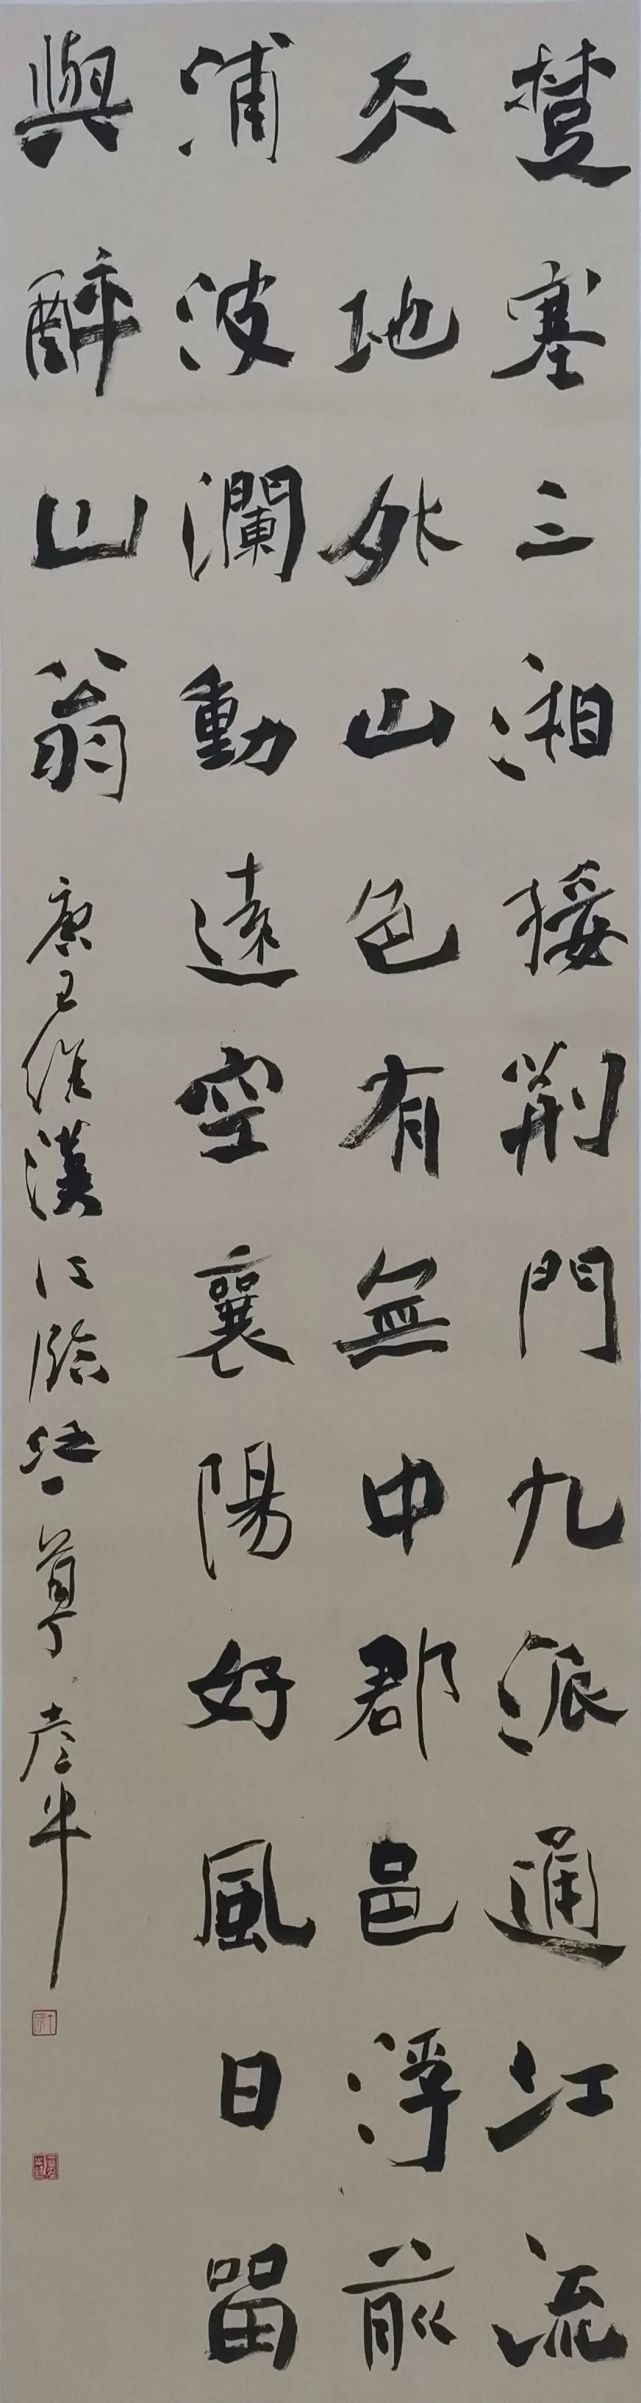 楚塞三湘接荊門九派通江流
天地外山色有無中郡邑浮前
浦波瀾動遠空襄陽好風日留
與醉山翁
唐王維漢江臨